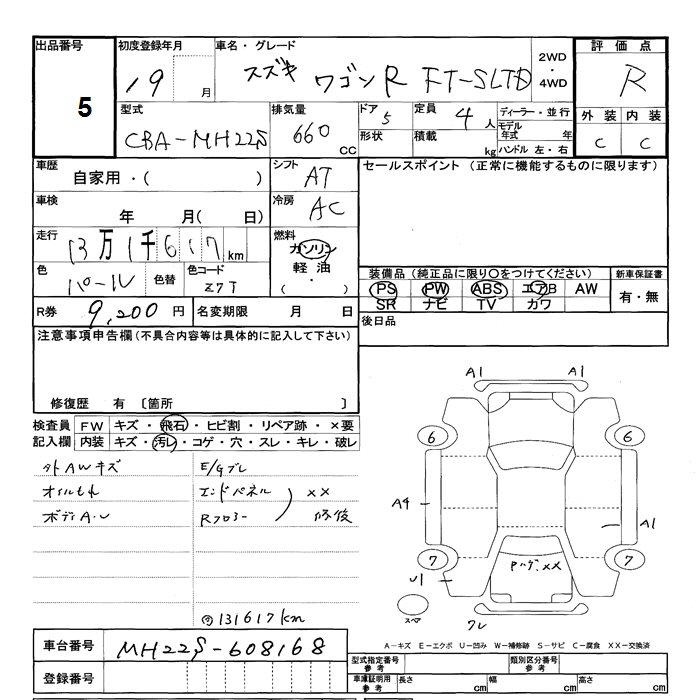 出品番号 5
初度登録年月 19 月
車名・グレード スズキ ワゴンR FT-SLTD
2WD・4WD
評価点 R
外装 内装
C C
型式 CBA-MH22S
排気量 660 cc
ドア 5
形状
定員 4 人
積載 kg
ディーラー・並行
モデル年式 年
ハンドル 左・右
車歴 自家用・( )
シフト AT
セールスポイント (正常に機能するものに限ります)
車検 年 月( 日)
冷房 AC
走行 13万1千617 km
燃料 ガソリン
軽油
( ・ )
色 パール 色替 色コード Z7T
装備品 (純正品に限り○をつけてください)
PS PW ABS エアB AW
SR ナビ TV カワ
新車保証書
有・無
R券 9,200円 名変期限 月 日
後日品
注意事項申告欄(不具合内容等は具体的に記入して下さい)
修復歴 有 〔箇所 〕
検査員記入欄
FW キズ・飛石・ヒビ割・リペア跡・×要
内装 キズ・汚レ・コゲ・穴・スレ・キレ・破レ
外AWキズ
オイルもれ
ボディA・U
E/Gブレ
エンドパネル
Rフロアー
××
修復
131617km
A1 A1
6 6
A4 A1
7 7
U1
Pハゲ、××
スペア
クレ
A-キズ E-エクボ U-凹み W-補修跡 S-サビ C-腐食 XX-交換済
車台番号 MH22S-608168
登録番号
型式指定番号 参考
類別区分番号 参考
車庫証明用 参考 長さ cm 幅 cm 高さ cm